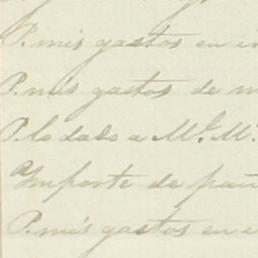 P. mis gastos en
P. mis gastos de
P. lo dado a M.l M.
Importe de
P. mis gastos en